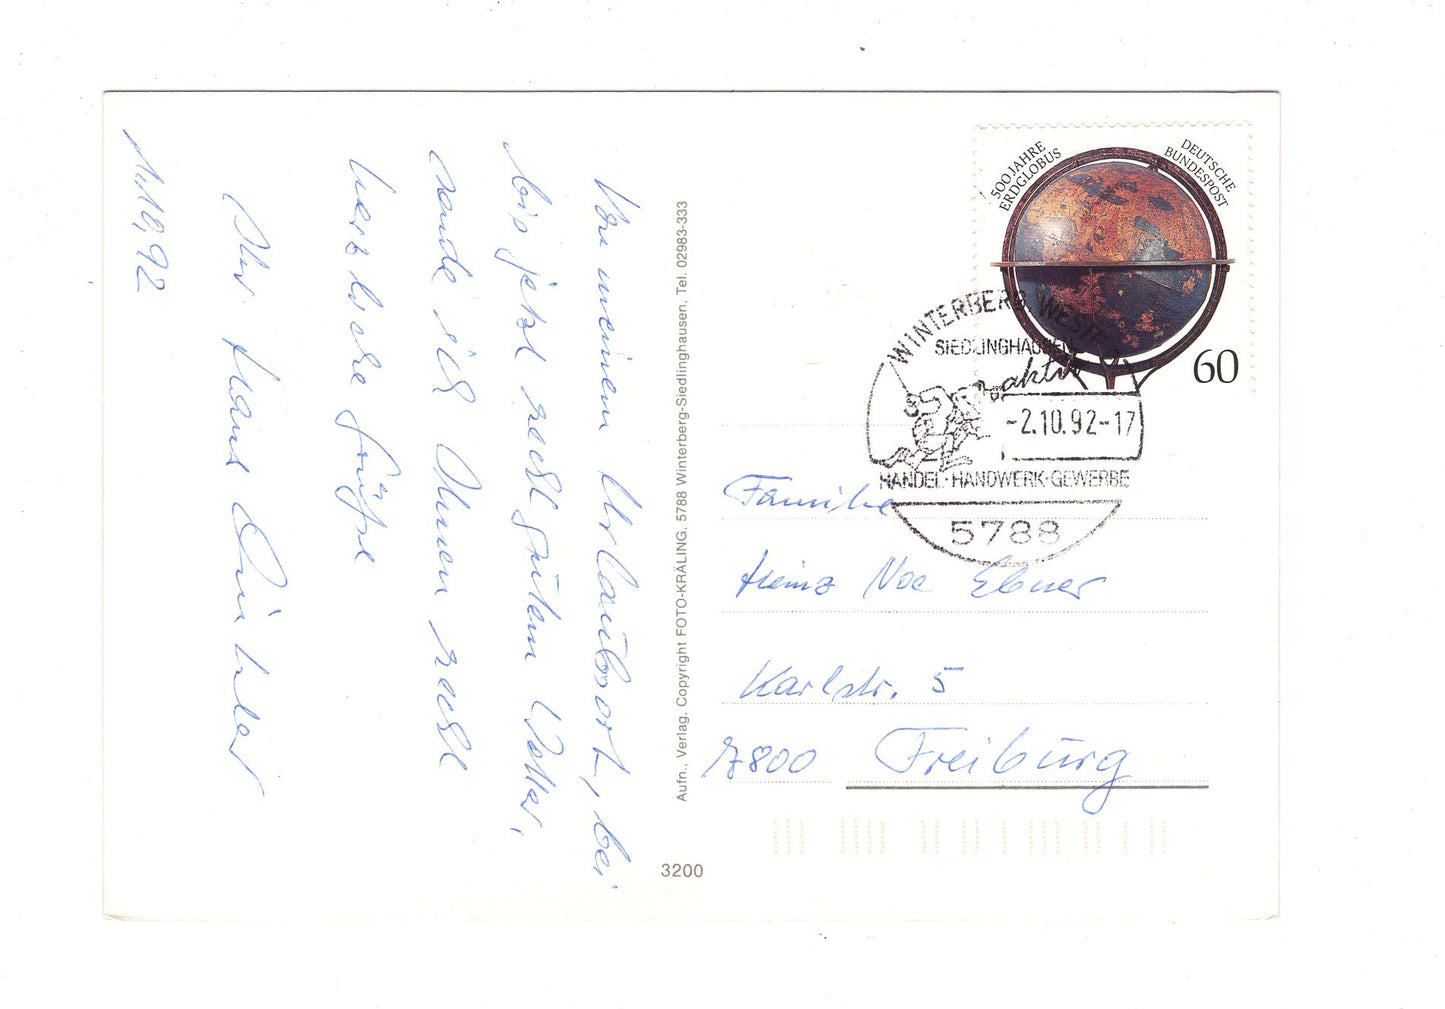 Von meinem Urlaubsort, bei
bis jetzt recht gutem Wetter,
sende ich Ihnen recht
herzliche Grüße
Ihr Hans
1.10.92
Aufn., Verlag, Copyright FOTO-KRÄLING, 5788 Winterberg-Siedlinghausen, Tel. 02983-333
3200
500 JAHRE
ERDGLOBUS
DEUTSCHE
BUNDESPOST
60
WINTERBERG, WESTF
SIEDLINGHAUSEN
aktiv
-2.10.92-17
HANDEL·HANDWERK·GEWERBE
5788
Familie
Heinz Noe Ebner
Karlstr. 5
7800 Freiburg